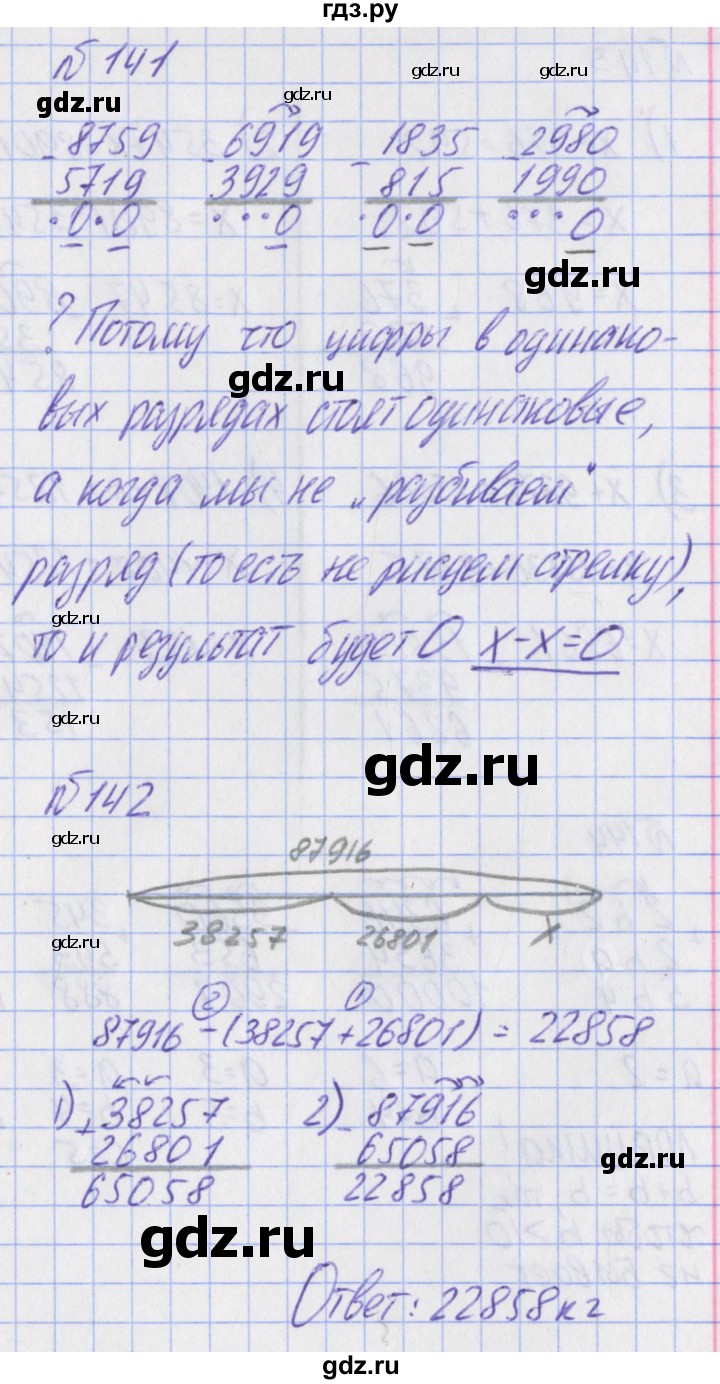 гдз.ру
№141
gdz.ru
gdz.ru
gdz.ru
- 8759 - 6919 - 1835 - 2980
5719 3929 815 1990
·0·0 ···0 ·0·0 ···0
gdz.ru
? Потому что цифры в одинако-
gdz.ru
вых разрядах стоят одинаковые,
gdz.ru
gdz.ru
а когда мы не „разбиваем"
разряд (то есть не рисуем стрелку),
gdz.ru
gdz.ru
то и результат будет 0 x-x=0
gdz.ru
gdz.ru
№142
gdz.ru
87916
38257 26801 x
gdz.ru
2 1
87916 - (38257 + 26801) = 22858
1) + 38257 2) - 87916
26801 65058
65058 22858
gdz.ru
gdz.ru
Ответ: 22858 кг
gdz.ru